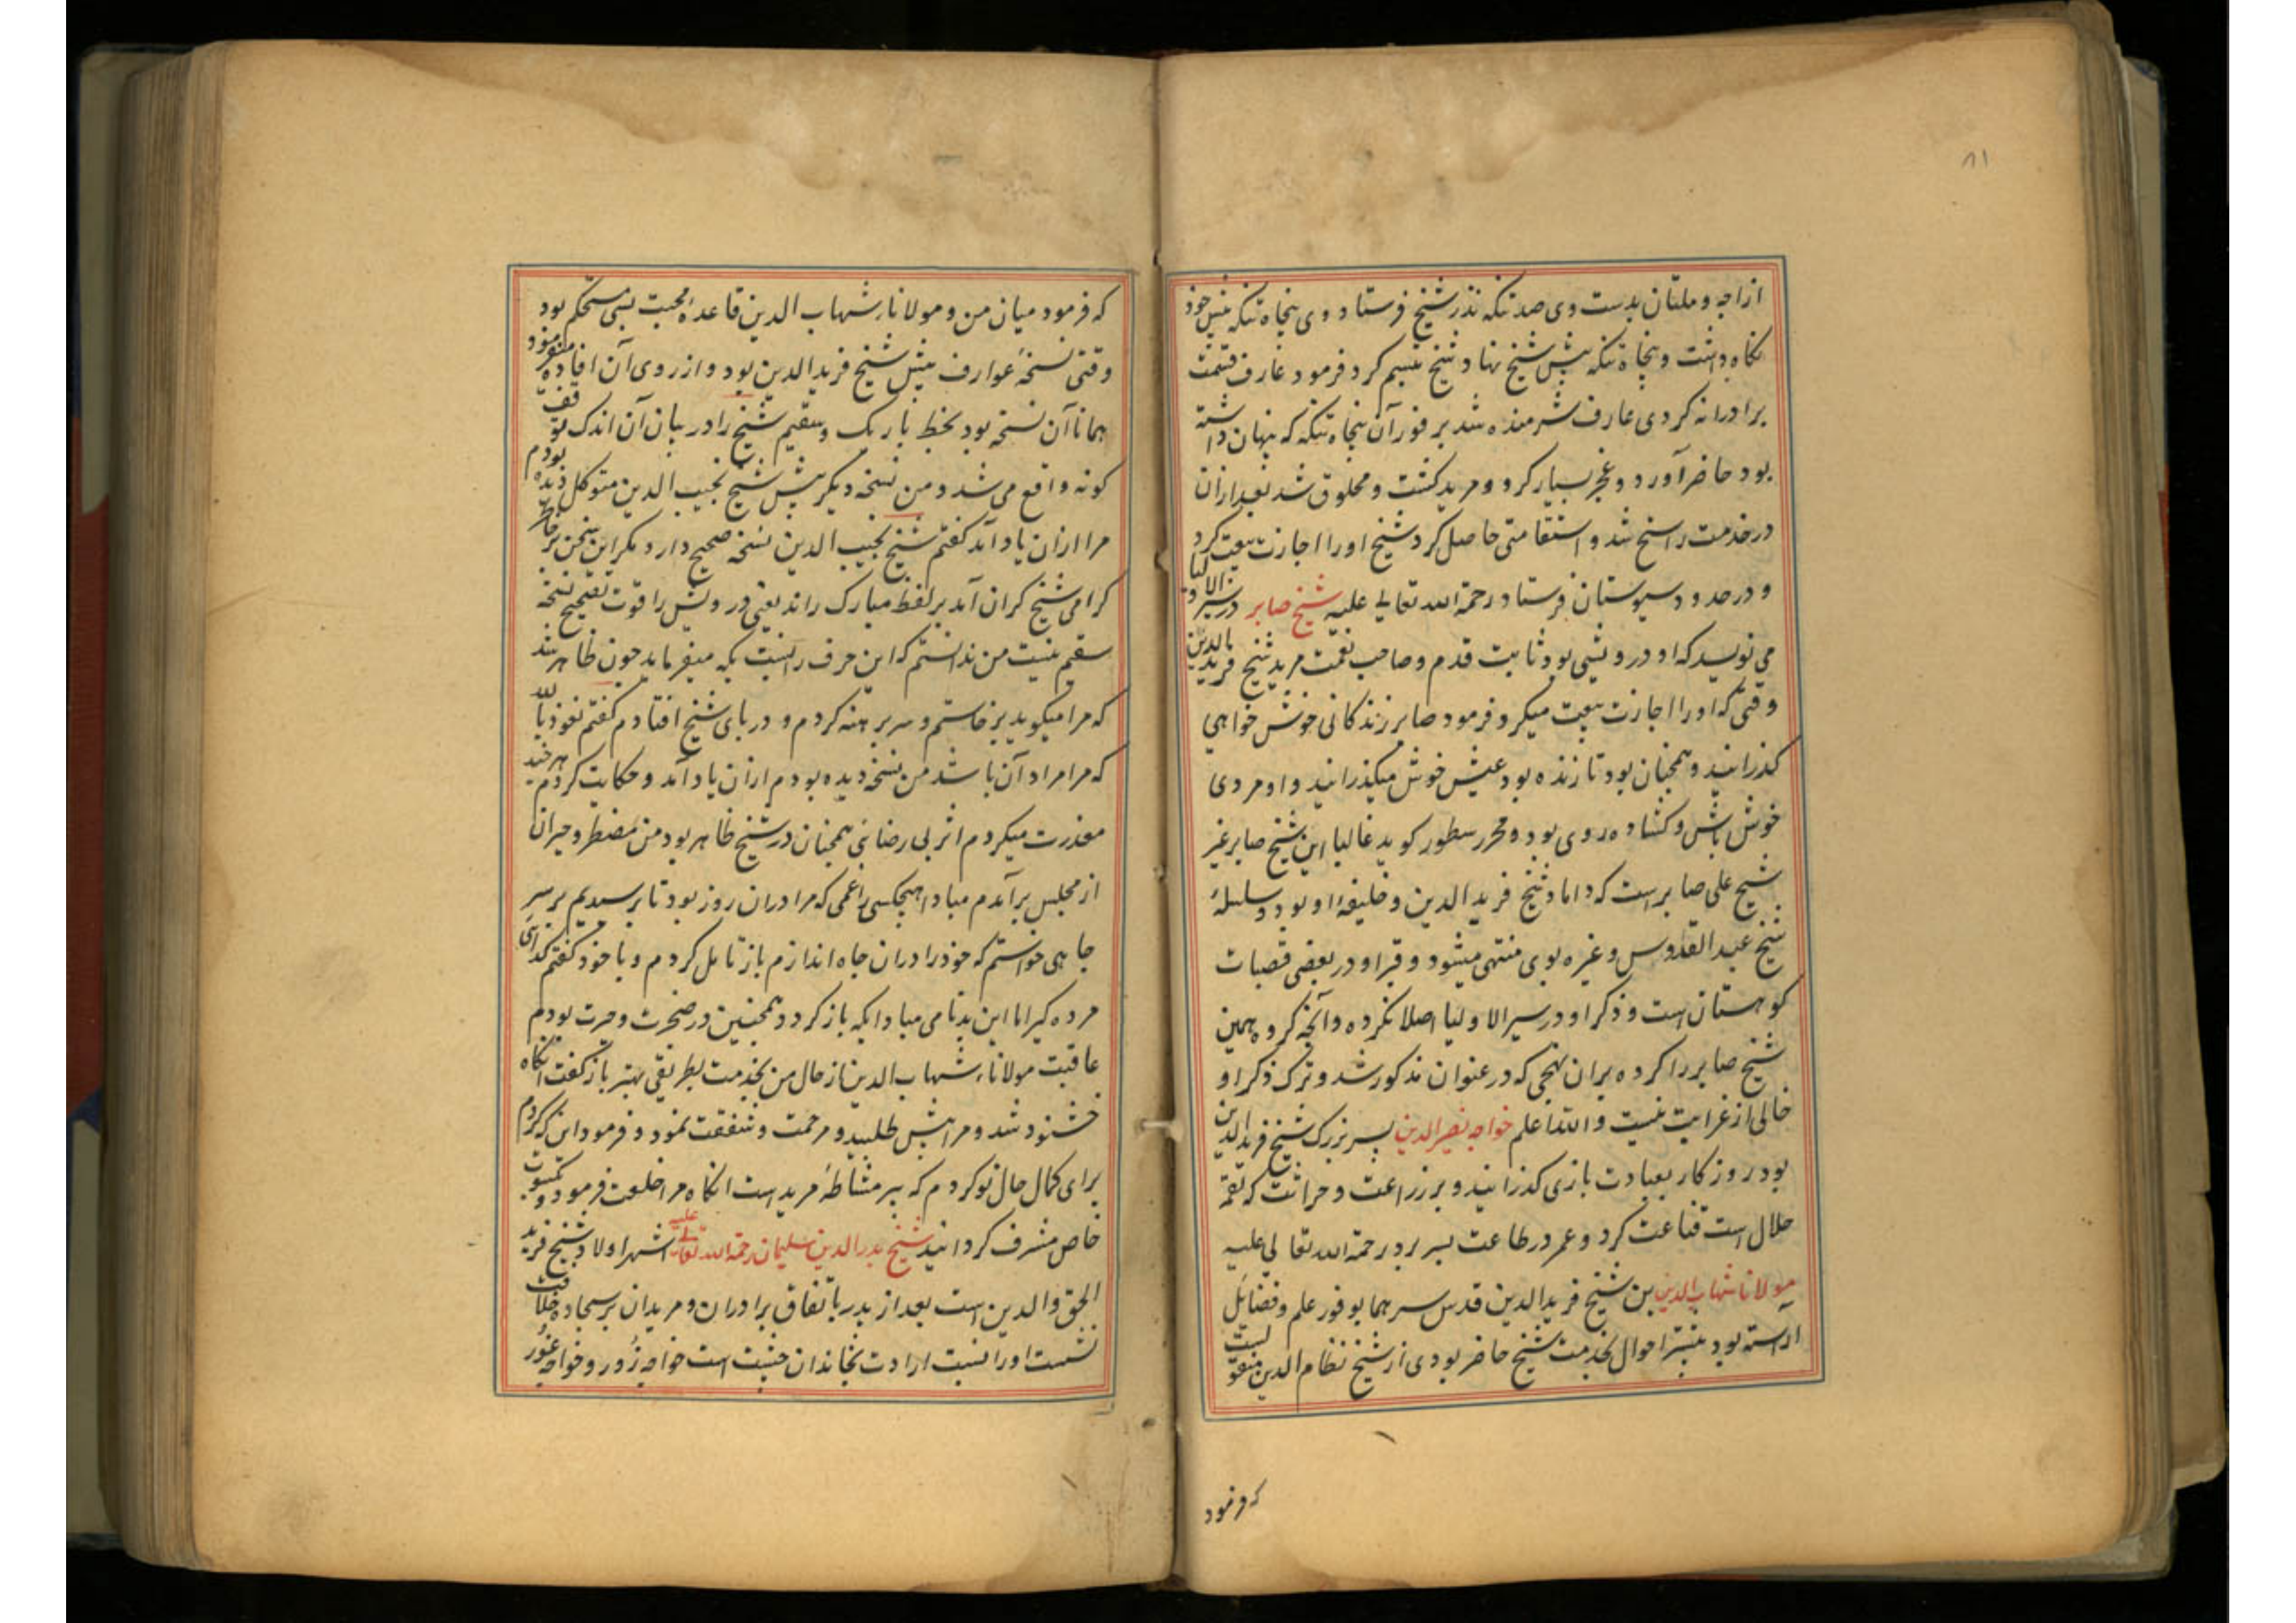 ۸۱
ازاچه و ملتان بدست وی صد تنکه نذر شیخ فرستاد و وی پنجاه تنکه پیش خود
نکاه داشت و پنجاه تنکه پیش شیخ نهاد شیخ تبسم کرد و فرمود عارف قسمت
برادرانه کردی عارف شرمنده شد بر فور آن پنجاه تنکه که پنهان داشته
بود حاضر آورد و عجز بسیار کرد و مرید کشت و محلوق شد بعد ازان
در خدمت راسخ شد و استقامتی حاصل کرد شیخ او را اجازت بیعت کرد
و در حدود سیوستان فرستاد رحمة الله تعالی علیه شیخ صابر در سیر الاولیا
می نویسد که او درویشی بود ثابت قدم و صاحب نعمت مرید شیخ فرید الدین
وقتی که او را اجازت بیعت میکرد فرمود صابر زندکانی خوش خواهی
کذرانید و همچنان بود تا زنده بود عیش خوش میکذرانید و او مردی
خوش باش و کشاده روی بود و محرر سطور کوید غالبا این شیخ صابر غیر
شیخ علی صابر است که داماد شیخ فرید الدین و خلیفهٔ او بود و سلسلهٔ
شیخ عبد القدوس و غیره بوی منتهی میشود و قبر او در بعضی قصبات
کوهستان است و ذکر او در سیر الاولیا اصلا نکرده و آنچه کرده همین
شیخ صابر را کرده بران نهجی که در عنوان مذکور شد و ترک ذکر او
خالی از غرابت نیست والله اعلم خواجه نصیر الدین پسر بزرک شیخ فرید الدین
بود روزکار بعبادت باری کذرانید و بر زراعت و حراثت که لقمهٔ
حلال است قناعت کرد و عمر در طاعت بسر برد رحمة الله تعالی علیه
مولانا شهاب الدین بن شیخ فرید الدین قدس سرهما بوفور علم و فضایل
آراسته بود بیشتر احوال بخدمت شیخ حاضر بودی از شیخ نظام الدین منقولست
که فرمود
که فرمود میان من و مولانا شهاب الدین قاعدهٔ محبت بسی مستحکم بود
وقتی نسخهٔ عوارف پیش شیخ فرید الدین بود و از روی آن افاده میفرمود
همانا آن نسخه بود بخط باریک و سقیم شیخ را در بیان آن اندک توقف
کونه واقع می شد و من نسخه دیکر پیش شیخ نجیب الدین متوکل دیده بودم
مرا ازان یاد آمد کفتم شیخ نجیب الدین نسخه صحیح دارد مکر این سخن بر خاطر
کرامی شیخ کران آمد بر لفظ مبارک راند یعنی درویش را قوت تصحیح نسخه
سقیم نیست من ندانستم که این حرف را نسبت بکه میفرماید چون ظاهر شد
که مرا میکوید برخاستم و سر برهنه کردم و در پای شیخ افتادم کفتم نعوذ بالله
که مرا مراد آن باشد من نسخه دیده بودم ازان یاد آمد و حکایت کردم هر چند
معذرت میکردم اثر بی رضائی همچنان در شیخ ظاهر بود من مضطر و حیران
از مجلس برآمدم مبادا هیچکسی را غمی که مرا دران روز بود تا برسیدیم بر سر
چاهی خواستم که خود را دران چاه اندازم باز تامل کردم و با خود کفتم
مرده کیر اما این بدنامی مبادا بکه باز کردد همچنین در ضجرت و حیرت بودم
عاقبت مولانا شهاب الدین از حال من بخدمت بطریقی بهتر باز کفت انکاه
خشنود شد و مرا پیش طلبید و مرحمت و شفقت نمود و فرمود این که کردم
برای کمال حال تو کردم که پیر مشاطهٔ مرید است انکاه مرا خلعت فرمود و بکسوت
خاص مشرف کردانید شیخ بدر الدین سلیمان رحمة الله تعالی علیه اشهر اولاد شیخ فرید
الحق والدین است بعد از پدر باتفاق برادران و مریدان بر سجاده خلافت
نشست او را نسبت ارادت بخاندان چشت است خواجه زور و خواجه غور